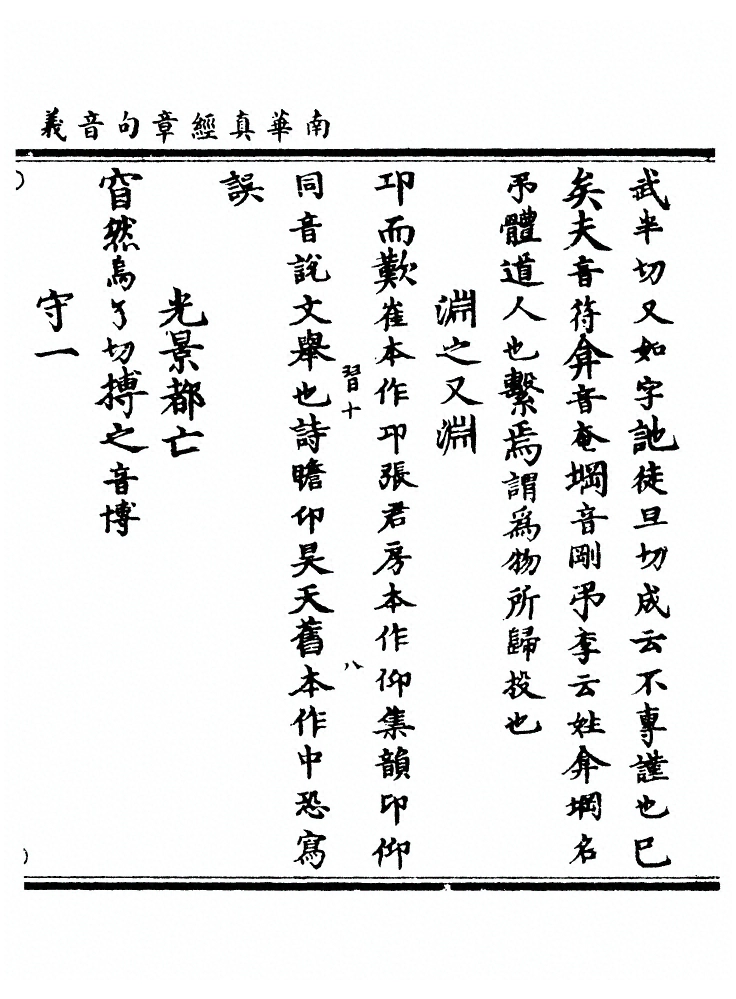 南華真經章句音義
武半切又如字訑徒旦切成云不專謹也已
矣夫音符弇音奄堈音剛弔李云姓弇堈名
弔體道人也繫焉謂爲物所歸投也
淵之又淵
卬而歎崔本作卬張君房本作仰集韻卬仰
習十 八
同音說文舉也詩瞻卬昊天舊本作中恐寫
誤
光景都亡
窅然烏了切搏之音博
守一